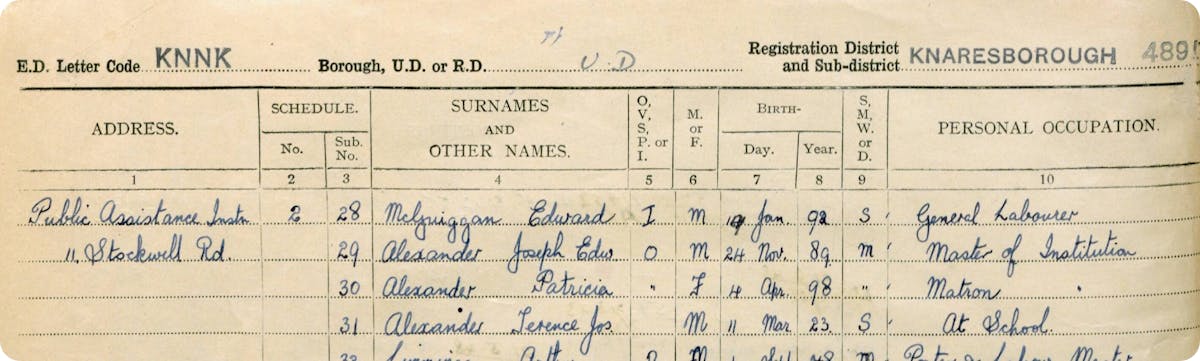 E.D. Letter Code KNNK Borough, U.D. or R.D. U.D Registration District and Sub-district KNARESBOROUGH 489
ADDRESS. SCHEDULE. No. Sub. No. SURNAMES AND OTHER NAMES. O, V, S, P. or I. M. or F. BIRTH- Day. Year. S, M, W. or D. PERSONAL OCCUPATION.
1 2 3 4 5 6 7 8 9 10
Public Assistance Instn 2 28 McGuiggan Edward I M 19 Jan 92 S General Labourer
11, Stockwell Rd. 29 Alexander Joseph Edw. O M 24 Nov. 89 M Master of Institution
30 Alexander Patricia " F 4 Apr. 98 " Matron
31 Alexander Terence Jos. M 11 Mar 23 S At School.